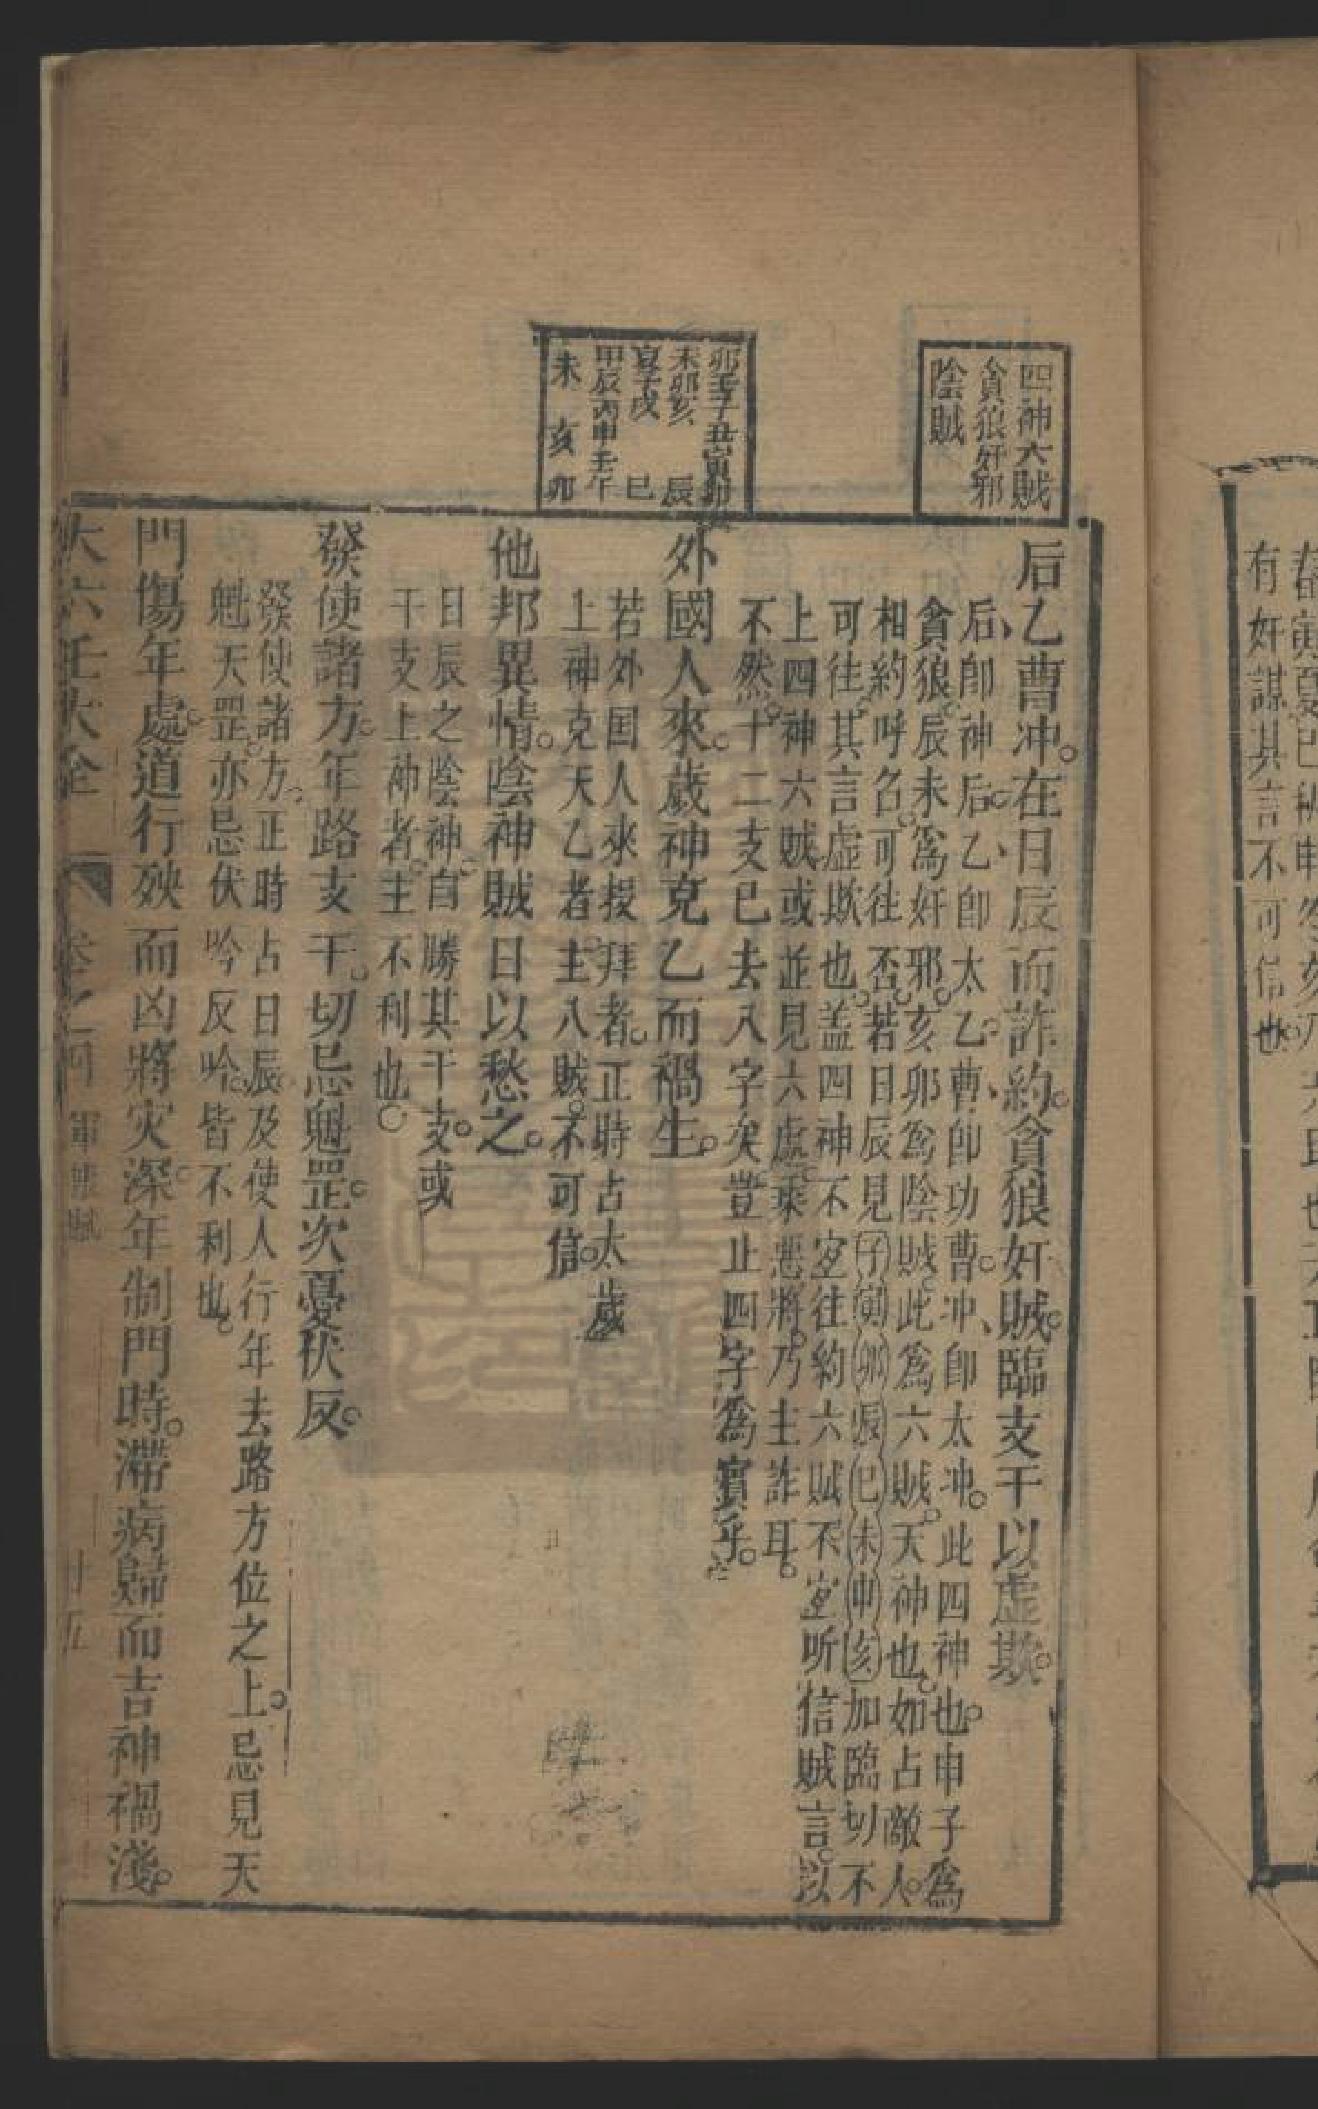 有奸謀其言不可信也
四神六賊
貪狼奸邪
陰賊
后乙曹冲在日辰而詐約貪狼奸賊臨支干以虛欺
后卽神后乙卽太乙曹卽功曹冲卽太冲此四神也申子爲
貪狼辰未爲奸邪亥卯爲陰賊此爲六賊天神也如占敵人
相約呼名可往否若日辰見子寅卯辰巳未申亥加臨切不
可往其言虛欺也盖四神不宜往約六賊不宜听信賊言以
上四神六賊或並見六虛乘惡將乃主詐耳
不然十二支已去八字矣豈止四字爲實乎
未卯亥 辰
未亥卯
外國人來歲神克乙而禍生
若外国人來投拜者正時占太歲
上神克天乙者主八賊不可信
他邦異情陰神賊日以愁之
日辰之陰神自勝其干支或
干支上神者主不利也
發使諸方年路支干切忌魁罡次憂伏反
發使諸方正時占日辰及使人行年去路方位之上忌見天
魁天罡亦忌伏吟反吟皆不利也
門傷年處道行殃而凶將灾深年制門時滯病歸而吉神禍淺
大六壬大全 卷之 軍帳賦 廿五